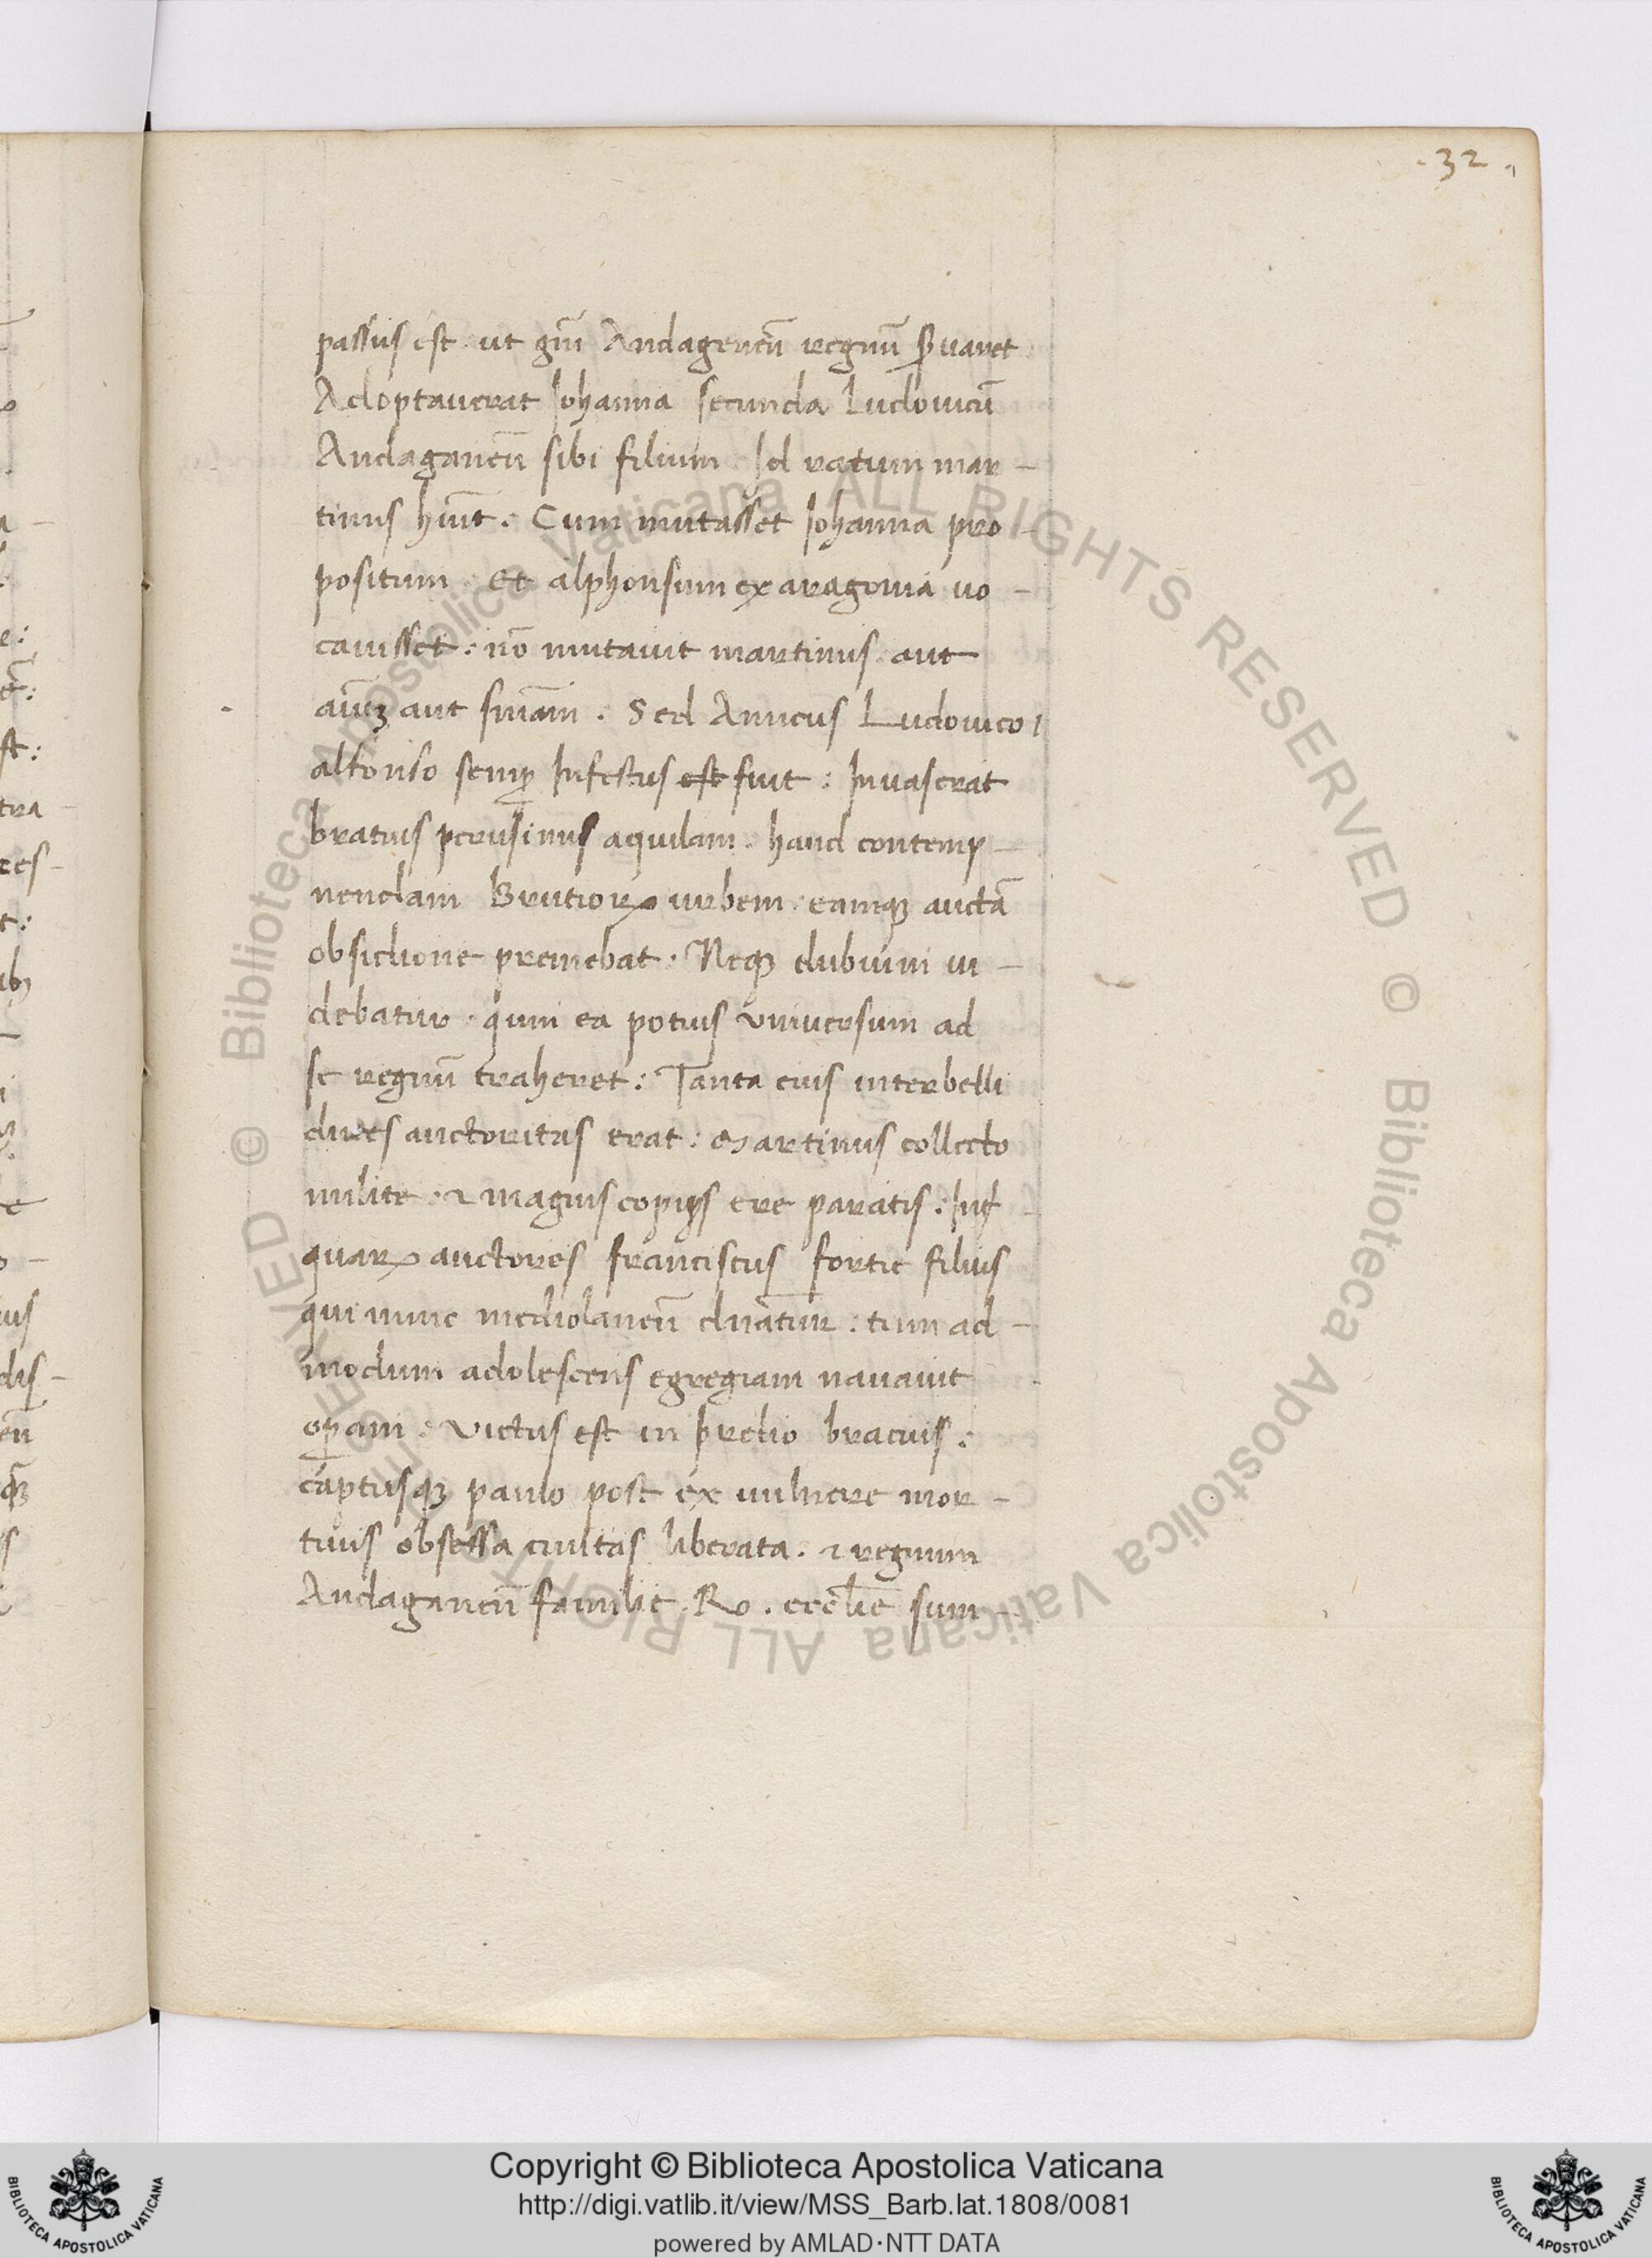 .32.
passus est ut gm̄ Andagencū regnū ꝑuaret
Adoptauerat Johanna secunda Ludouicū
Andagancū sibi filium. Id ratum mar-
tinus hūit. Cum mutasset Johanna pro-
positum. Et alphonsum ex aragonia uo-
cauisset: nō mutauit martinus aut
aut sn̄iam. Sed Amicus Ludouico
alfonso semꝑ Infestus est fuit: Inuaserat
bratius perusinus aquilam. haud contemp-
nendam Brutioꝝ urbem. eamqꝫ
obsidione premebat. Neqꝫ dubium ui-
debatur. quin ea potius Vniuersum ad
se regnū traheret: Tanta eius inter belli
duces auctoritas erat: Martinus collecto
milite. ⁊ magnis copijs ere paratis:
quaꝝ auctores franciscus fortie filius
qui nunc mediolancū dn̄atur: tum ad-
modum adolescens egregiam nauauit
oꝑam. Victus est in prelio bracius:
captusqꝫ paulo post ex uulnere mor-
tuus obsessa ciuitas liberata. ⁊ regnum
Andagancū familie. Ro. ecclīe sum-
Copyright © Biblioteca Apostolica Vaticana
http://digi.vatlib.it/view/MSS_Barb.lat.1808/0081
powered by AMLAD·NTT DATA
BIBLIOTECA APOSTOLICA VATICANA
BIBLIOTECA APOSTOLICA VATICANA
© Biblioteca Apostolica Vaticana ALL RIGHTS RESERVED © Biblioteca Apostolica Vaticana ALL RIGHTS RESERVED